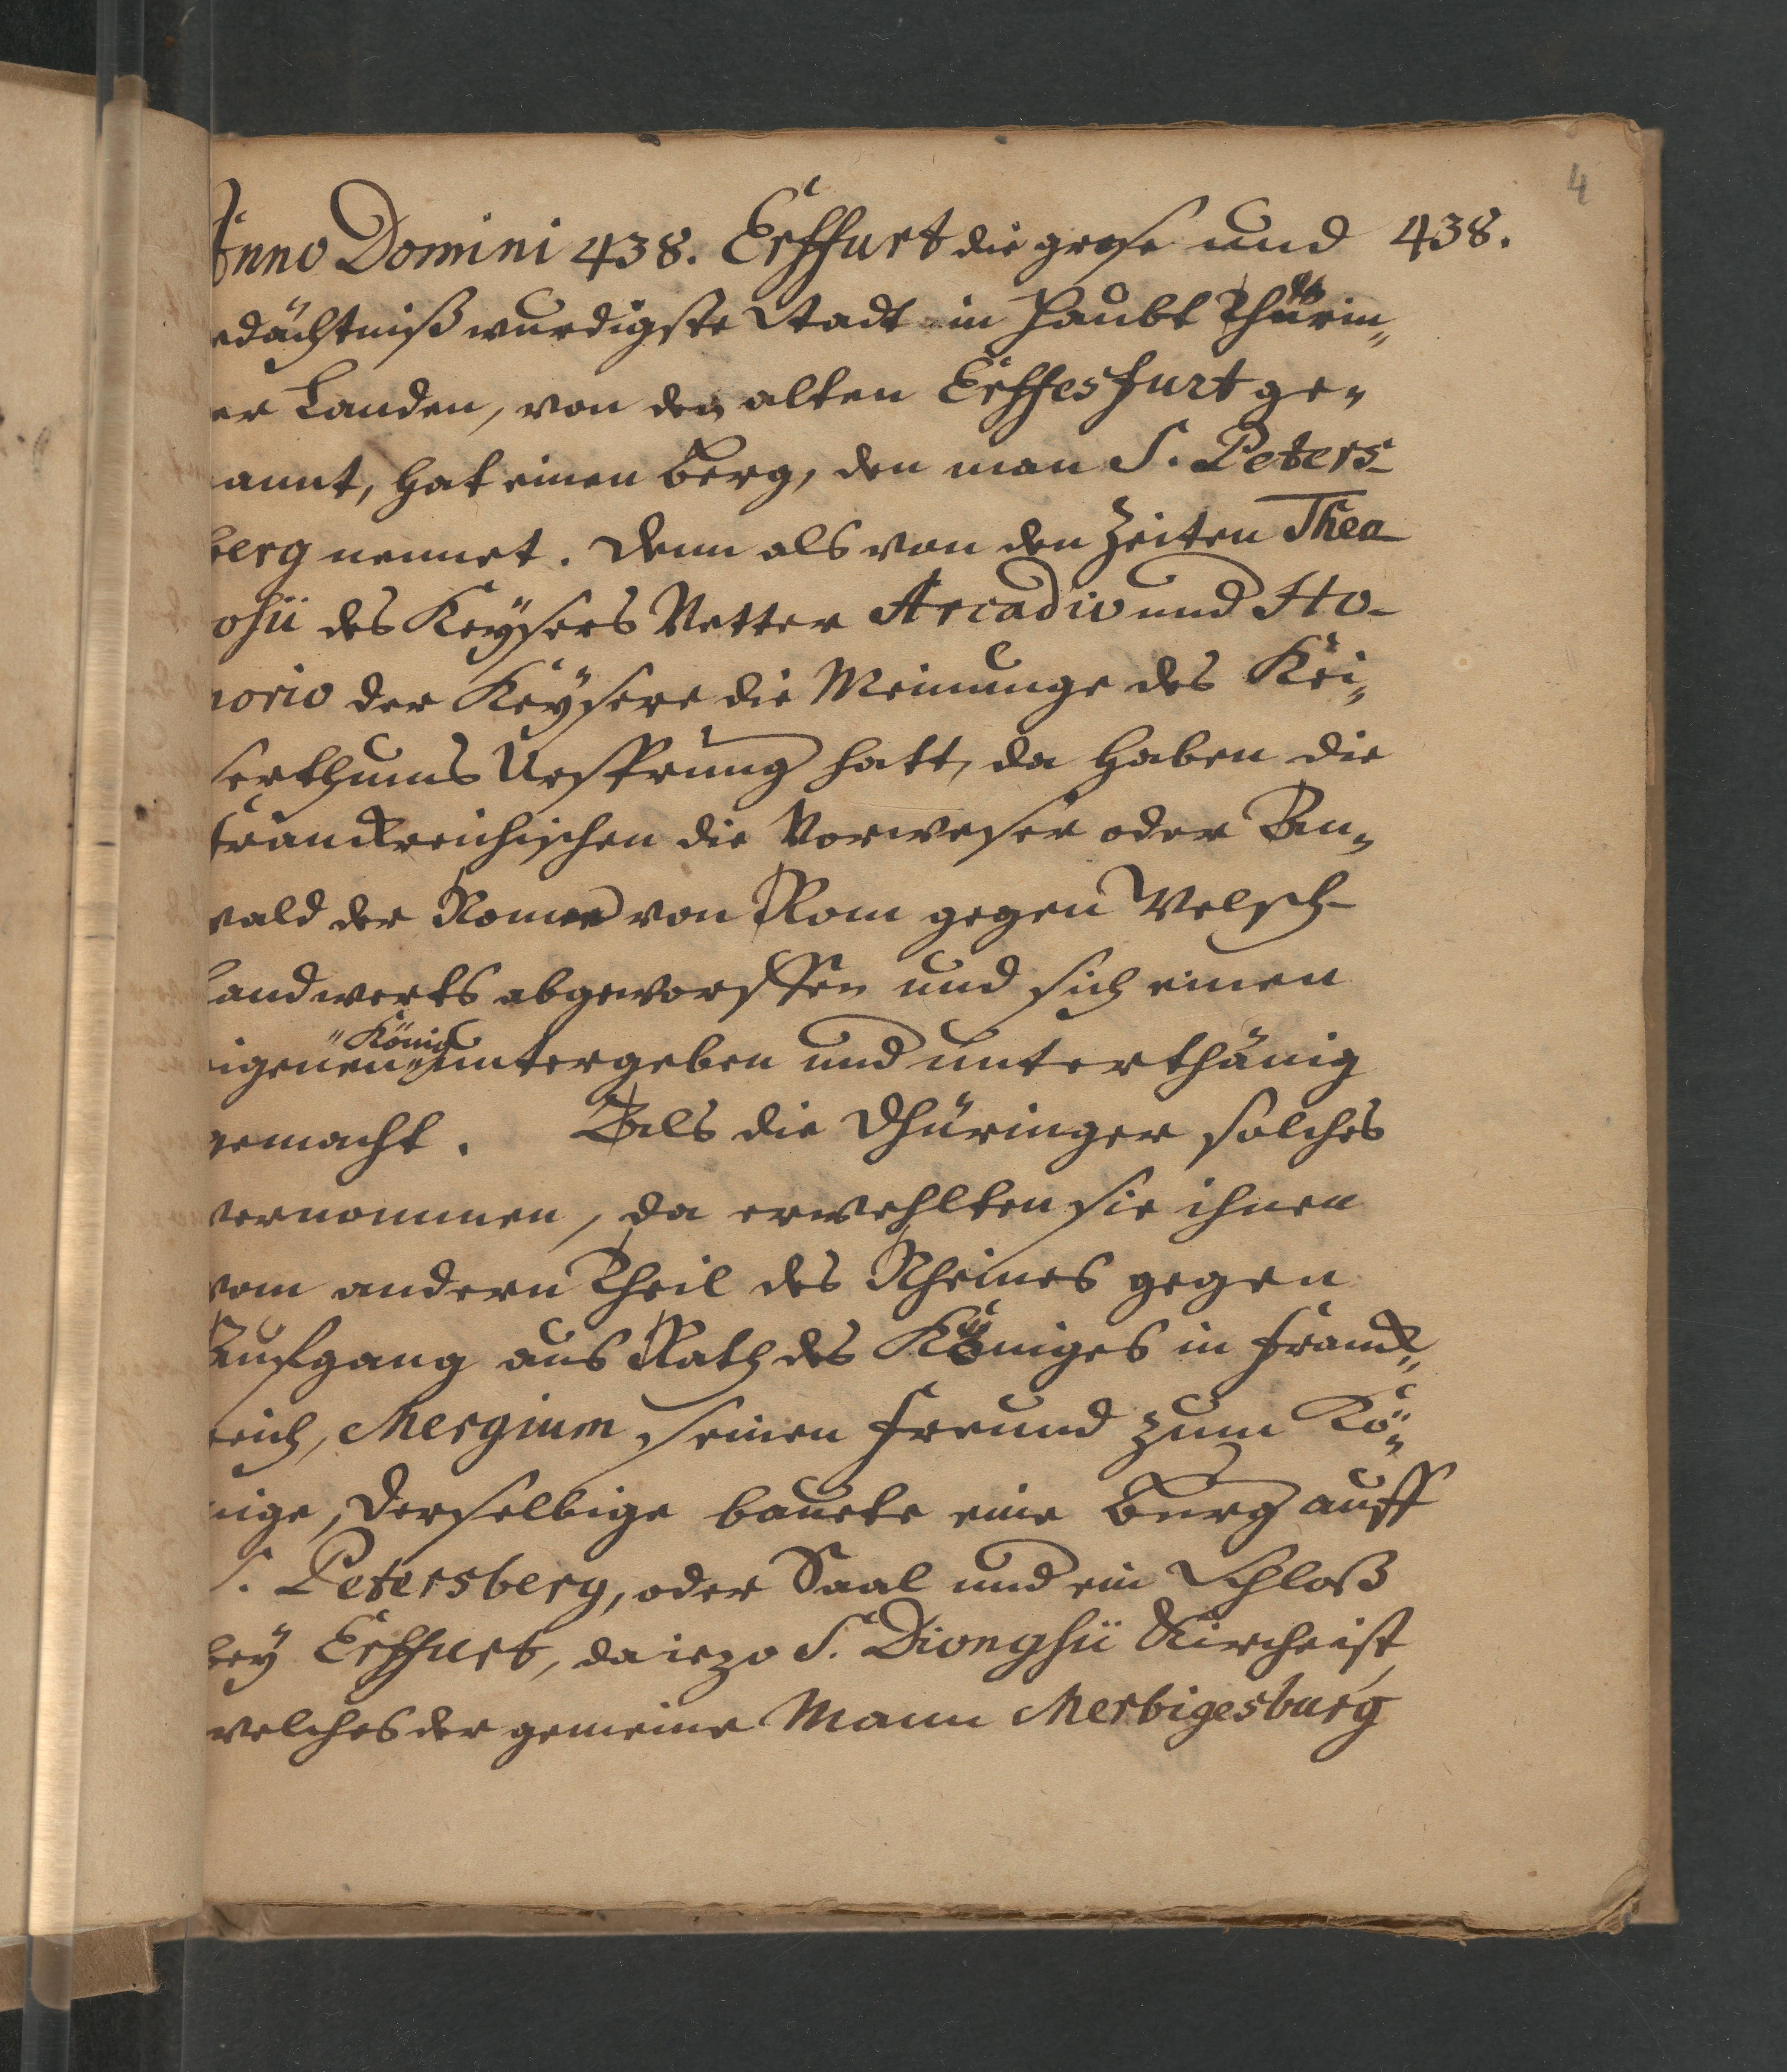 4
Anno Domini 438. Erffurt die grose und 438.
edächtniß wurdigste Stadt in Haubt Thürin„
er Landen, von den alten Erffesfurt ge„
annt, hat einen Berg, den man S. Peters-
berg nennet. Denn als von den Zeiten Thea
osii des Keysers Vetter Arcadio und Ho-
norio der Keysere die Meinunge des Kei„
serthums Ursprung hatt, da haben die
franckreichischen die Vorweser oder An„
wald der Romer von Rom gegen Welsch-
landwerts abgeworffen und sich einen
eigenen „König„ untergeben und unterthänig
gemacht. Als die Dhüringer solches
vernommen, da erwehlten sie ihnen
vom andern Theil des Rheines gegen
Aufgang aus Rath des Königes in franck„
reich, Mergium, seinen freund zum Kö„
nige, derselbige bauete eine Burg auff
S. Petersberg, oder Saal und ein Schloß
bey Erffurt, da iezo S. Dionysii Kirche ist,
welches der gemeine Mann Merbigesburg